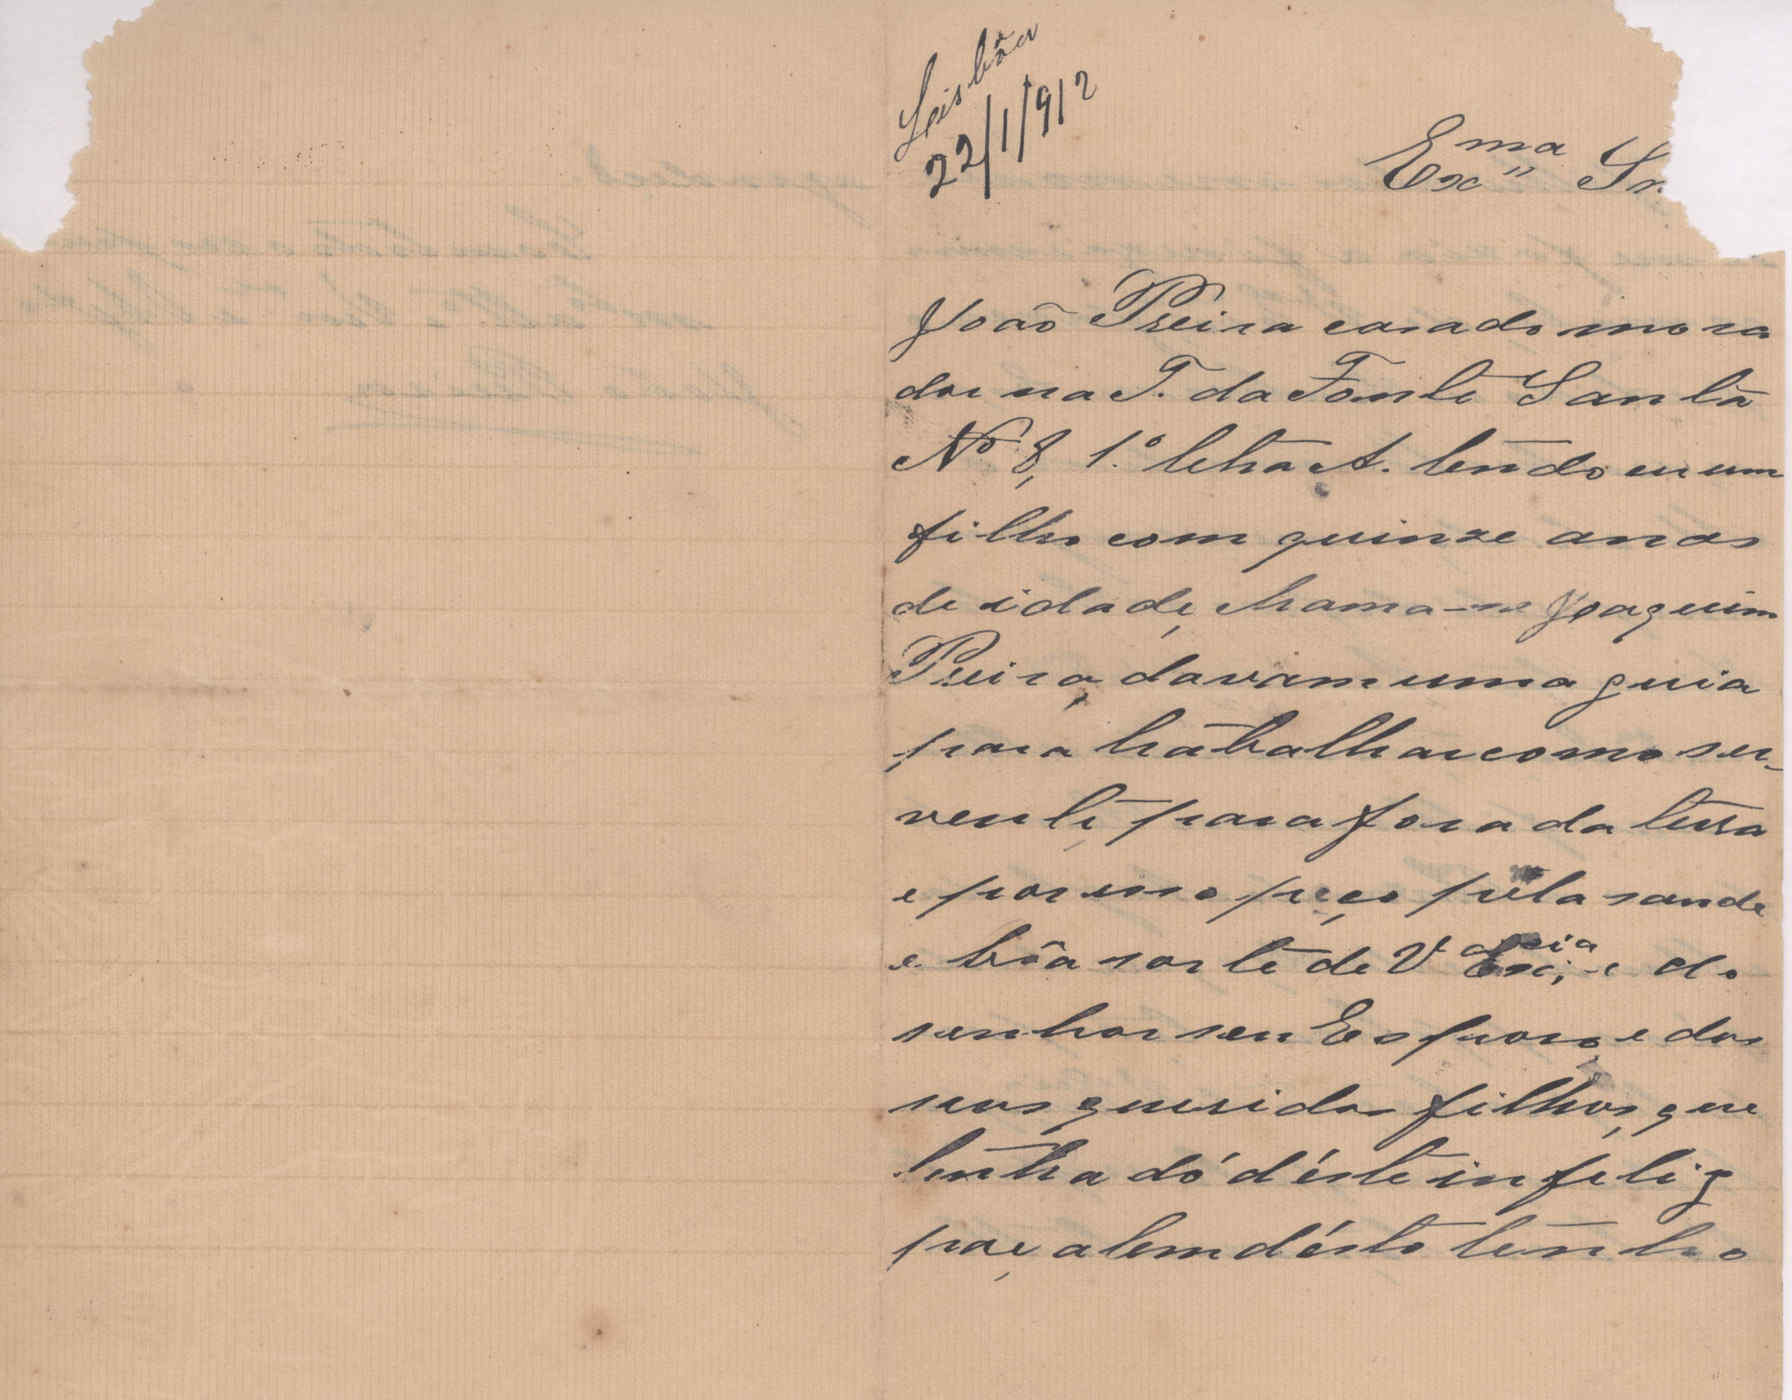 Lisbôa
22/1/912
Ex.ma Sr.
João Preira casado mora
dor na T. da Fonte Santa
Nº 8, 1.º letra A. tendo eu um
filho com quinze anos
de idade, chama-se Joaquim
Preira, davam uma guia
para trabalhar como ser-
vente, para fora da terra
e por isso peço pela saude
e bôa sorte de V Ex.cia, e do
senhor seu Esposo, e dos
seus queridos filhos, que
tenha dó d'éste infeliz
pae, alem d'ésto tenho